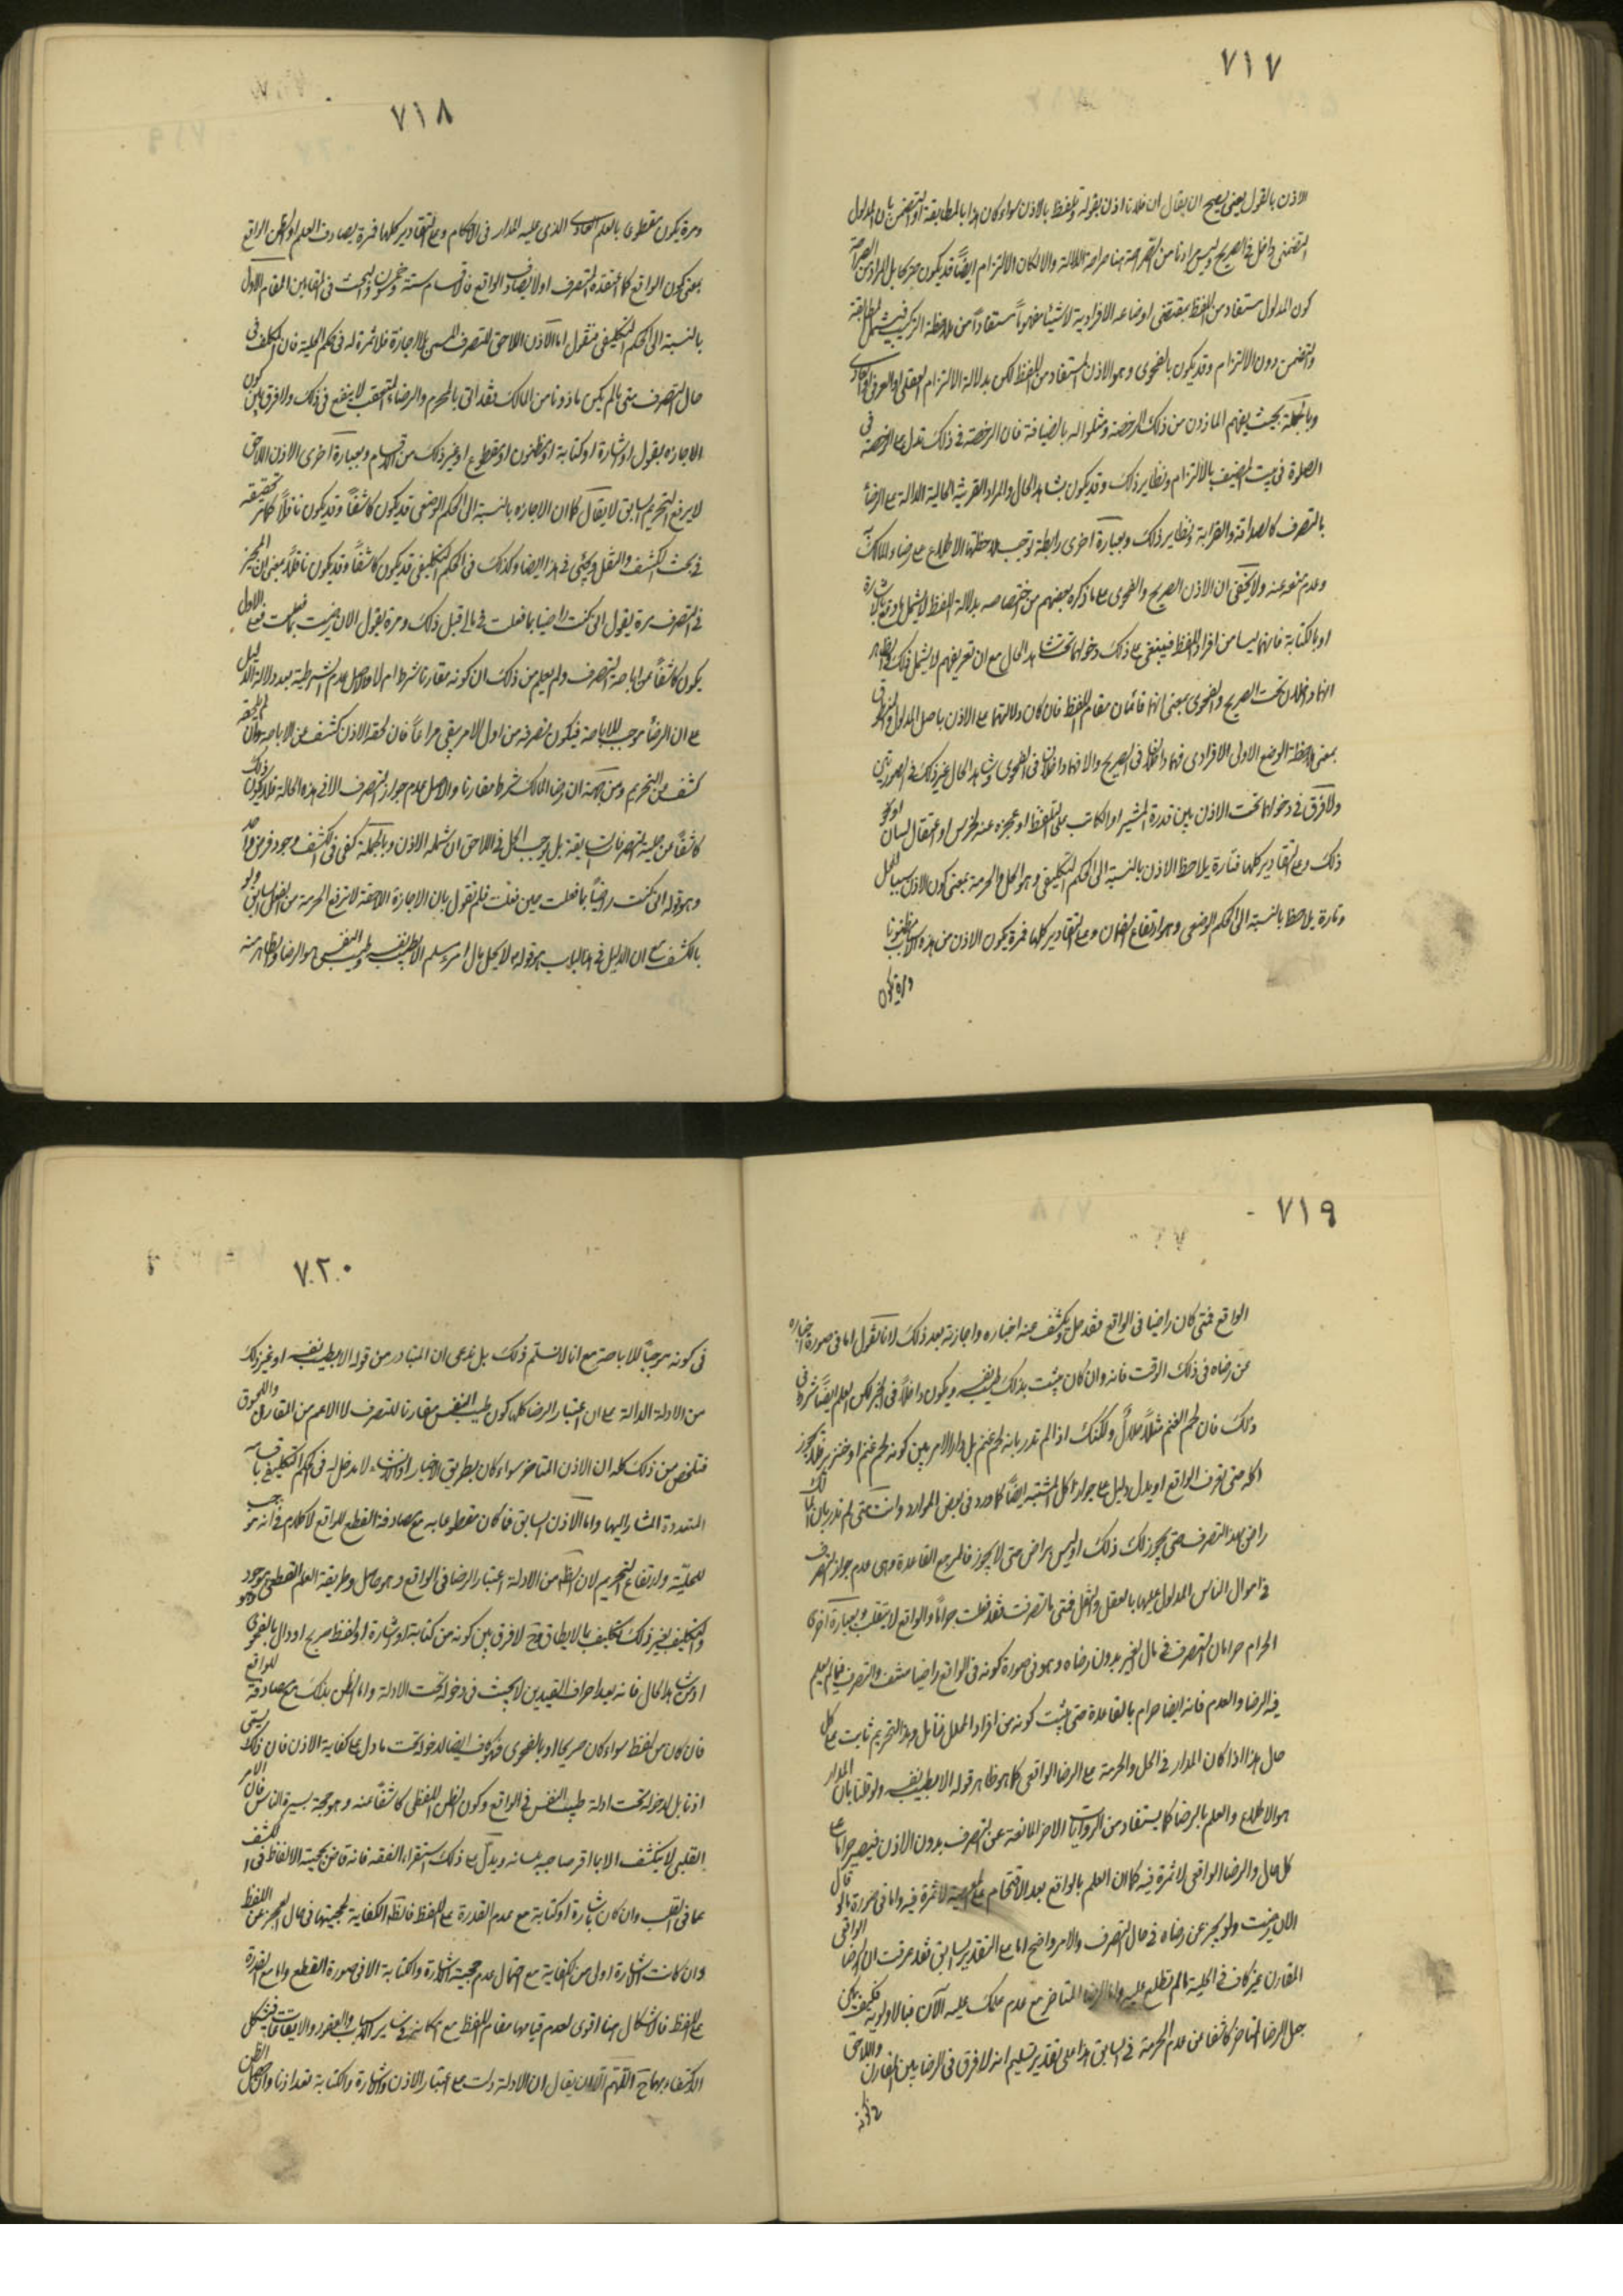 ٧١٧
الاذن بالقول يعنى يصح ان يقال ان فلانا اذن بقوله وتلفظ بالاذن سواء كان هذا بالمطابقة او التضمن بان المدلول
التضمنى داخل فى الصريح وليس مرادنا من الصراحة هنا صراحة الدلالة والا لكان الالتزام ايضاً قد يكون صريحا بل المراد من الصراحة
كون المدلول مستفاد من اللفظ بمقتضى اوضاعه الافرادية لا شيئا مفهوماً مستفاداً من ملاحظة التركيب فيشمل المطابقة
والتضمن دون الالتزام وقد يكون بالفحوى وهو الاذن المستفاد من اللفظ لكن بدلالة الالتزام العقلى او العرفى او العادى
وبالجملة بحيث يفهم الماذون من ذلك الرخصة ومثلوا له بالضيافة فان الرخصة فى ذلك تدل على الرخصة فى
الصلوة فى بيت المضيف بالالتزام ونظاير ذلك وقد يكون بشاهد الحال والمراد القرينة الحالية الدالة على الرضا
بالتصرف كالصداقة والقرابة ونظاير ذلك وبعبارة اخرى رابطة توجب ملاحظتها الاطلاع على رضاء المالك به
وعدم منعه عنه ولا يخفى ان الاذن الصريح والفحوى على ما ذكره بعضهم من اختصاصه بدلالة اللفظ لا يشمل ما وقع بالاشارة
او بالكتابة فانهما ليسا من افراد اللفظ فينبغى على ذلك دخولهما تحت شاهد الحال مع ان تعريفهم لا يشمل ذلك والظاهر
انهما داخلان تحت الصريح والفحوى بمعنى انهما قائمان مقام اللفظ فان كان دلالتهما على الاذن باصل المدلول
بمعنى ملاحظة الوضع الاولى الافرادى فهما داخلان فى الصريح والا فهما داخلان فى الفحوى وشاهد الحال غير ذلك فى الصورتين
ولا فرق فى دخولهما تحت الاذن بين قدرة المشير او الكاتب على اللفظ او عجزه عنه لخرس او اعتقال لسان او نحو
ذلك وعلى التقادير كلها فتارة يلاحظ الاذن بالنسبة الى الحكم التكليفى وهو الحل والحرمة بمعنى كون الاذن سببا للحل
وتارة يلاحظ بالنسبة الى الحكم الوضعى وهو ارتفاع الضمان وعلى التقادير كلها فمرة يكون الاذن من هذه الاسباب مظنونا
ومرة يكون
٧١٨
ومرة يكون مقطوعا بالعلم العادى الذى عليه المدار فى الاحكام وعلى التقادير كلها فمرة يصادف العلم او الظن الواقع
بمعنى كون الواقع كما اعتقده المتصرف اولا يصادف الواقع فالاقسام ستة وخمسون والبحث فى المقامين المقام الاول
بالنسبة الى الحكم التكليفى فنقول اما الاذن اللاحق للتصرف المسمى بالاجازة فلا ثمرة له فى حكم الحلية فان المكلف فى
حال التصرف متى لم يكن ماذونا من المالك فقد اتى بالمحرم والرضاء المتعقب لا ينفع فى ذلك ولا فرق بين كون
الاجازه بقول او اشارة او كتابة او مظنون او مقطوع او غير ذلك من الاقسام وبعبارة اخرى الاذن اللاحق
لا يرفع التحريم السابق لا يقال كما ان الاجازه بالنسبة الى الحكم الوضعى قد يكون كاشفاً وقد يكون ناقلاً كما مر تحقيقه
فى بحث الكشف والنقل ويجئى فى هذا ايضا وكذلك فى الحكم التكليفى قد يكون كاشفاً وقد يكون ناقلاً بمعنى ان المجيز
فى التصرف مرة يقول انى كنت راضيا بما فعلت فى مالى قبل ذلك ومرة يقول الان رضيت بما فعلت فعلى الاول
يكون كاشفاً عن اباحة التصرف ولم يعلم من ذلك ان كونه مقارنا شرط ام لا فالاصل عدم الشرطية بعد دلالة الدليل
على ان الرضا موجب للاباحة فيكون تصرفه من اول الامر يبقى مراعاً فان لحقه الاذن كشف عن الاباحة وان لم يلحقه
كشف عن التحريم ومن جهة ان رضا المالك شرط مقارنا والاصل عدم جواز التصرف الا فى هذه الحالة فلا يكون ذلك
كاشفاً عن حلية التصرفات السابقة بل يوجب الحل فى اللاحق ان شمله الاذن وبالجملة يكفى فى الكشف وجود فرض واحد
وهو قوله انى كنت راضياً بما فعلت حين فعلت فلم نقول بان الاجازة اللاحقة لا ترفع الحرمة من الفعل السابق ولو
بالكشف مع ان الدليل فى هذا الباب هو قوله لا يحل مال امرء مسلم الا بطيب نفسه وطيب النفس هو الرضا وظاهره منه
٧١٩
الواقع فمتى كان راضيا فى الواقع فقد حل ويكشف عنه اخباره واجازته بعد ذلك لانا نقول اما فى صورة اخباره
عن رضاه فى ذلك الوقت فانه وان كان يثبت بذلك طيب نفسه ويكون داخلاً فى الخبر لكن العلم ايضاً شرط فى
ذلك فان لحم الغنم مثلاً حلال ولكنك اذا لم تدر بانه لحم غنم بل دار الامر بين كونه لحم غنم او خنزير فلا يجوز
اكله حتى تعرف الواقع او يدل دليل على جواز اكل المشتبه ايضاً كما ورد فى بعض الموارد وانت متى لم تدر بان المالك
راض بهذا التصرف حتى يجوز لك ذلك او ليس براض حتى لا يجوز فالمرجع القاعدة وهى عدم جواز التصرف
فى اموال الناس المدلول عليها بالعقل والنقل فمتى ما تصرفت فقد فعلت حراماً والواقع لا ينقلب وبعبارة اخرى
الحرام حرامان التصرف فى مال الغير بدون رضاه وهو فى صورة كونه فى الواقع راضيا منتف والتصرف فيما لم يعلم
فيه الرضا والعدم فانه ايضا حرام بالقاعدة حتى يثبت كونه من افراد المحلل فتامل وهذا التحريم ثابت على كل
حال هذا اذا كان المدار فى الحل والحرمة على الرضا الواقعى كما هو ظاهر قوله الا بطيب نفسه ولو قلنا بان المدار
هو الاطلاع والعلم بالرضا كما يستفاد من الروايات الاخر المانعة عن التصرف بدون الاذن فيصير حراما على
كل حال والرضا الواقعى لا ثمرة فيه كما ان العلم بالواقع بعد الاقتحام على المعصية لا ثمرة فيه واما فى صورة ما لو قال
الان رضيت ولم يخبر عن رضاه فى حال التصرف والامر واضح اما على التقدير السابق فقد عرفت ان الرضا الواقعى
المقارن غير كاف فى الحلية ما لم تطلع عليه واما الرضا المتاخر مع عدم علمك عليه الآن فبالاولوية فكيف يمكن
جعل الرضا المتاخر كاشفا عن عدم الحرمة فى السابق هذا على تقدير تسليم انه لا فرق فى الرضا بين المقارن واللاحق
فى كونه
٧٢٠
فى كونه موجباً للاباحة مع انا لا نسلم ذلك بل ندعى ان المتبادر من قوله الا بطيب نفسه او غير ذلك
من الادلة الدالة على ان اعتبار الرضا كلها كون طيب النفس مقارنا للتصرف لا الاعم من المقارن والملحوق
فتلخص من ذلك كله ان الاذن المتاخر سواء كان بطريق الاخبار او الانشاء لا مدخل له فى الحكم التكليفى باقسامه
المتعددة المشار اليها واما الاذن السابق فما كان مقطوعا به مع مصادفة القطع للواقع لا كلام فى انه موجب
للحلية ولارتفاع التحريم لان الظ من الادلة اعتبار الرضا فى الواقع وهو حاصل وطريقه العلم القطعى وهو موجود
والتكليف بغير ذلك تكليف بما لا يطاق وح لا فرق بين كونه من كتابة او اشارة او لفظ صريح او دال بالفحوى
او شاهد الحال فانه بعد احراز القيدين لا بحث فى دخوله تحت الادلة واما الظن بذلك مع مصادفة للواقع
فان كان من لفظ سواء كان صريحا او بالفحوى فهو كاف ايضا لدخوله تحت ما دل على كفاية الاذن فان ذلك يسمى
اذنا بل لدخوله تحت ادلة طيب النفس فى الواقع وكون الظن اللفظى كاشفا عنه وهو حجة بسيرة الناس فان الامر
القلبى لا ينكشف الا باقرار صاحبه بلسانه ويدل على ذلك استقراء الفقه فانه قاض بحجية الالفاظ فى الكشف
عما فى القلب وان كان باشارة او كتابة مع عدم القدرة على اللفظ فالظ الكفاية لحجيتهما فى حال العجز عن اللفظ
وان كانت الاشارة اولى من الكتابة مع احتمال عدم حجية الاشارة والكتابة الا فى صورة القطع واما مع القدرة
على اللفظ فالاشكال هنا اقوى لعدم قيامهما مقام اللفظ مع امكانه فى ساير الابواب والعقود والايقاعات فيشكل
الاكتفاء بهما ح اللهم الا ان يقال ان الادلة دلت على اعتبار الاذن والاشارة والكتابة تعد اذنا والحاصل الظن